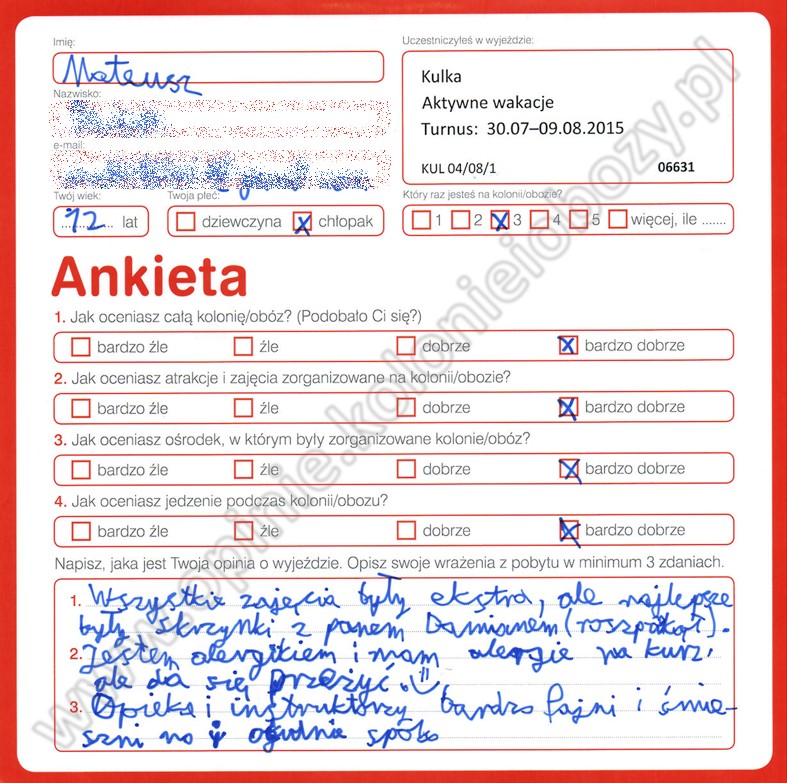 Imię:
Mateusz
Nazwisko:
e-mail:
Uczestniczyłeś w wyjeździe:
Kulka
Aktywne wakacje
Turnus: 30.07–09.08.2015
KUL 04/08/1 06631
Twój wiek:
12 lat
Twoja płeć:
dziewczyna X chłopak
Który raz jesteś na kolonii/obozie?
1 2 X 3 4 5 więcej, ile .......
Ankieta
1. Jak oceniasz całą kolonię/obóz? (Podobało Ci się?)
bardzo źle źle dobrze X bardzo dobrze
2. Jak oceniasz atrakcje i zajęcia zorganizowane na kolonii/obozie?
bardzo źle źle dobrze X bardzo dobrze
3. Jak oceniasz ośrodek, w którym były zorganizowane kolonie/obóz?
bardzo źle źle dobrze X bardzo dobrze
4. Jak oceniasz jedzenie podczas kolonii/obozu?
bardzo źle źle dobrze X bardzo dobrze
Napisz, jaka jest Twoja opinia o wyjeździe. Opisz swoje wrażenia z pobytu w minimum 3 zdaniach.
1. Wszystkie zajęcia były ekstra, ale najlepsze
były skrzynki z panem Damianem
2. Jestem alergikiem i mam alergie na kurz,
ale da się przeżyć.
3. Opieka i instruktorzy bardzo fajni i śmie-
szni no i ogulnie spoko
www.opinie.kolonieiobozy.pl